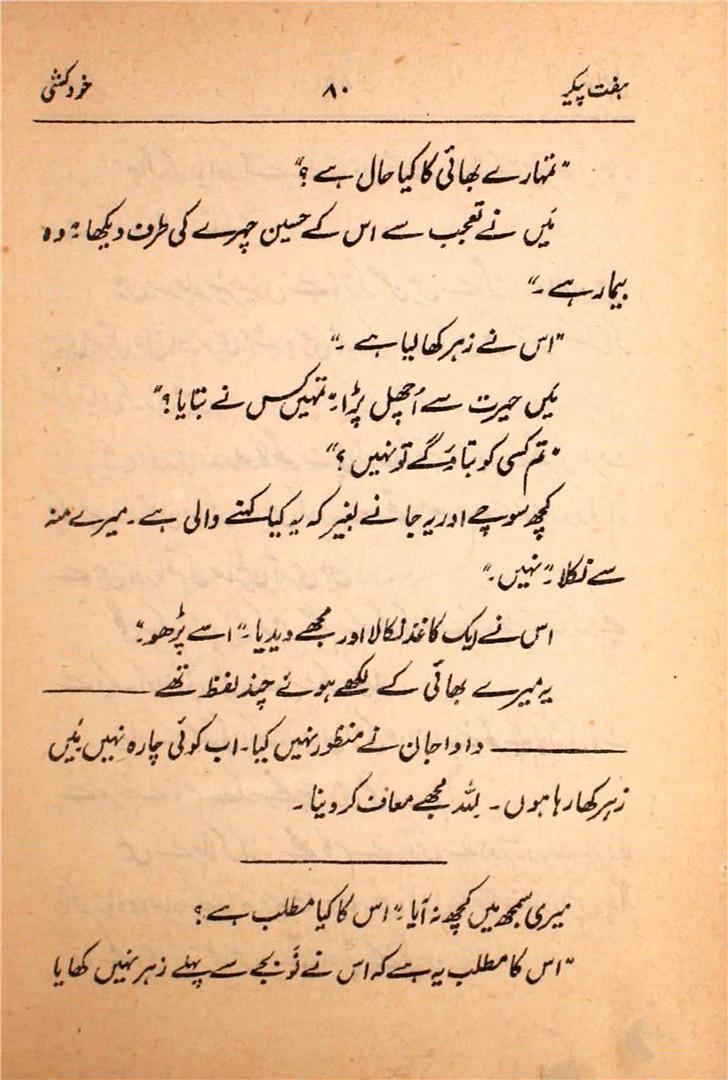 ہفت پیکر ۸۰ خودکشی
"تمہارے بھائی کا کیا حال ہے؟"
مَیں نے تعجب سے اس کے حسین چہرے کی طرف دیکھا: "وہ
بیمار ہے۔"
"اس نے زہر کھا لیا ہے۔"
مَیں حیرت سے اُچھل پڑا: "تمہیں کس نے بتایا؟"
"تم کسی کو بتاؤ گے تو نہیں؟"
کچھ سوچے اور یہ جانے بغیر کہ یہ کیا کہنے والی ہے۔ میرے منہ
سے نکلا۔ "نہیں۔"
اس نے ایک کاغذ نکالا اور مجھے دیدیا۔ "اسے پڑھو۔"
یہ میرے بھائی کے لکھے ہوئے چند لفظ تھے ———
——— دادا جان نے منظور نہیں کیا۔ اب کوئی چارہ نہیں مَیں
زہر کھا رہا ہوں۔ للہ مجھے معاف کر دینا۔
میری سمجھ میں کچھ نہ آیا۔ "اس کا کیا مطلب ہے؟
"اس کا مطلب یہ ہے کہ اس نے نَو بجے سے پہلے زہر نہیں کھایا